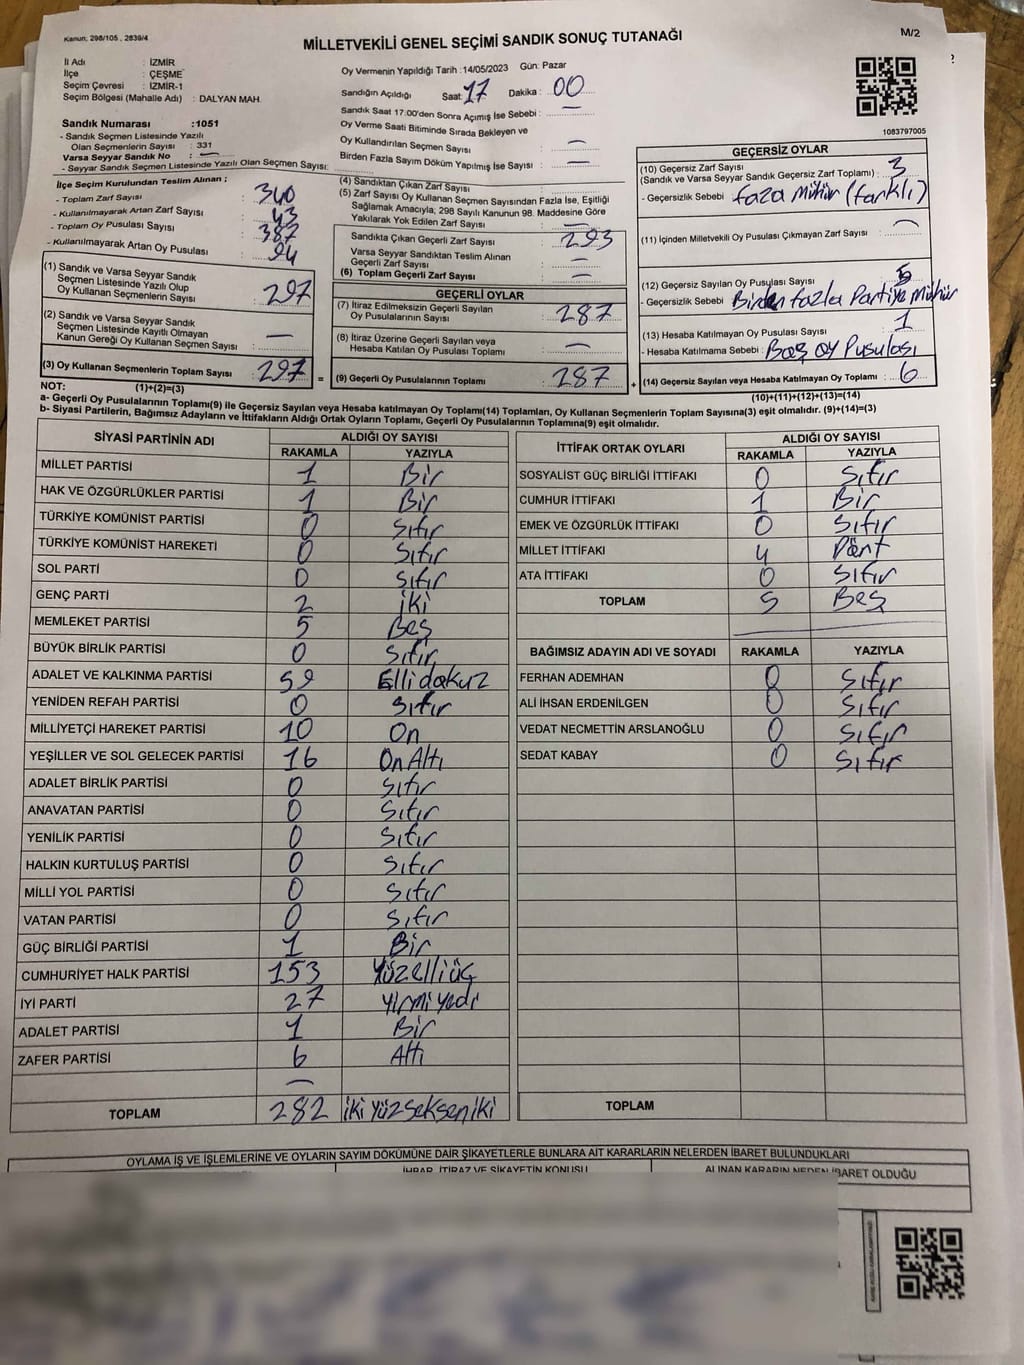 Kanun; 298/105 , 2839/4
M/2
MİLLETVEKİLİ GENEL SEÇİMİ SANDIK SONUÇ TUTANAĞI
İl Adı : İZMİR
İlçe : ÇEŞME
Seçim Çevresi : İZMİR-1
Seçim Bölgesi (Mahalle Adı) : DALYAN MAH.
Sandık Numarası :1051
- Sandık Seçmen Listesinde Yazılı
Olan Seçmenlerin Sayısı : 331
Varsa Seyyar Sandık No : —
- Seyyar Sandık Seçmen Listesinde Yazılı Olan Seçmen Sayısı:
Oy Vermenin Yapıldığı Tarih :14/05/2023 Gün: Pazar
Sandığın Açıldığı Saat: 17 Dakika : 00
Sandık Saat 17:00'den Sonra Açmış İse Sebebi : —
Oy Verme Saati Bitiminde Sırada Bekleyen ve
Oy Kullandırılan Seçmen Sayısı : —
Birden Fazla Sayım Döküm Yapılmış İse Sayısı : —
1083797005
İlçe Seçim Kurulundan Teslim Alınan ;
- Toplam Zarf Sayısı : 340
- Kullanılmayarak Artan Zarf Sayısı : 43
- Toplam Oy Pusulası Sayısı : 387
- Kullanılmayarak Artan Oy Pusulası : 94
(1) Sandık ve Varsa Seyyar Sandık
Seçmen Listesinde Yazılı Olup
Oy Kullanan Seçmenlerin Sayısı : 297
(2) Sandık ve Varsa Seyyar Sandık
Seçmen Listesinde Kayıtlı Olmayan
Kanun Gereği Oy Kullanan Seçmen Sayısı : —
(3) Oy Kullanan Seçmenlerin Toplam Sayısı : 297
(4) Sandıktan Çıkan Zarf Sayısı :
(5) Zarf Sayısı Oy Kullanan Seçmen Sayısından Fazla İse, Eşitliği
Sağlamak Amacıyla, 298 Sayılı Kanunun 98. Maddesine Göre
Yakılarak Yok Edilen Zarf Sayısı : —
Sandıkta Çıkan Geçerli Zarf Sayısı : 293
Varsa Seyyar Sandıktan Teslim Alınan
Geçerli Zarf Sayısı : —
(6) Toplam Geçerli Zarf Sayısı : —
GEÇERLİ OYLAR
(7) İtiraz Edilmeksizin Geçerli Sayılan
Oy Pusulalarının Sayısı : 287
(8) İtiraz Üzerine Geçerli Sayılan veya
Hesaba Katılan Oy Pusulası Toplamı : —
= (9) Geçerli Oy Pusulalarının Toplamı : 287
GEÇERSİZ OYLAR
(10) Geçersiz Zarf Sayısı
(Sandık ve Varsa Seyyar Sandık Geçersiz Zarf Toplamı) : 3
- Geçersizlik Sebebi : faza Mühür (farklı)
(11) İçinden Milletvekili Oy Pusulası Çıkmayan Zarf Sayısı : —
(12) Geçersiz Sayılan Oy Pusulası Sayısı : 5
- Geçersizlik Sebebi : Birden fazla Partiye Mühür
(13) Hesaba Katılmayan Oy Pusulası Sayısı : 1
- Hesaba Katılmama Sebebi : Boş Oy Pusulası
+ (14) Geçersiz Sayılan veya Hesaba Katılmayan Oy Toplamı : 6
NOT: (1)+(2)=(3)
(10)+(11)+(12)+(13)=(14)
a- Geçerli Oy Pusulalarının Toplamı(9) ile Geçersiz Sayılan veya Hesaba katılmayan Oy Toplamı(14) Toplamları, Oy Kullanan Seçmenlerin Toplam Sayısına(3) eşit olmalıdır. (9)+(14)=(3)
b- Siyasi Partilerin, Bağımsız Adayların ve İttifakların Aldığı Ortak Oyların Toplamı, Geçerli Oy Pusulalarının Toplamına(9) eşit olmalıdır.
SİYASİ PARTİNİN ADI ALDIĞI OY SAYISI
RAKAMLA YAZIYLA
MİLLET PARTİSİ 1 Bir
HAK VE ÖZGÜRLÜKLER PARTİSİ 1 Bir
TÜRKİYE KOMÜNİST PARTİSİ 0 Sıfır
TÜRKİYE KOMÜNİST HAREKETİ 0 Sıfır
SOL PARTİ 0 Sıfır
GENÇ PARTİ 2 İki
MEMLEKET PARTİSİ 5 Beş
BÜYÜK BİRLİK PARTİSİ 0 Sıfır
ADALET VE KALKINMA PARTİSİ 59 Ellidokuz
YENİDEN REFAH PARTİSİ 0 Sıfır
MİLLİYETÇİ HAREKET PARTİSİ 10 On
YEŞİLLER VE SOL GELECEK PARTİSİ 16 On Altı
ADALET BİRLİK PARTİSİ 0 Sıfır
ANAVATAN PARTİSİ 0 Sıfır
YENİLİK PARTİSİ 0 Sıfır
HALKIN KURTULUŞ PARTİSİ 0 Sıfır
MİLLİ YOL PARTİSİ 0 Sıfır
VATAN PARTİSİ 0 Sıfır
GÜÇ BİRLİĞİ PARTİSİ 1 Bir
CUMHURİYET HALK PARTİSİ 153 Yüzelliüç
İYİ PARTİ 27 Yirmiyedi
ADALET PARTİSİ 1 Bir
ZAFER PARTİSİ 6 Altı
—
TOPLAM 282 İki yüz seksen iki
İTTİFAK ORTAK OYLARI ALDIĞI OY SAYISI
RAKAMLA YAZIYLA
SOSYALİST GÜÇ BİRLİĞİ İTTİFAKI 0 Sıfır
CUMHUR İTTİFAKI 1 Bir
EMEK VE ÖZGÜRLÜK İTTİFAKI 0 Sıfır
MİLLET İTTİFAKI 4 Dört
ATA İTTİFAKI 0 Sıfır
TOPLAM 5 Beş
BAĞIMSIZ ADAYIN ADI VE SOYADI RAKAMLA YAZIYLA
FERHAN ADEMHAN 0 Sıfır
ALİ İHSAN ERDENİLGEN 0 Sıfır
VEDAT NECMETTİN ARSLANOĞLU 0 Sıfır
SEDAT KABAY 0 Sıfır
TOPLAM
OYLAMA İŞ VE İŞLEMLERİNE VE OYLARIN SAYIM DÖKÜMÜNE DAİR ŞİKAYETLERLE BUNLARA AİT KARARLARIN NELERDEN İBARET BULUNDUKLARI
İHBAR, İTİRAZ VE ŞİKAYETİN KONUSU ALINAN KARARIN NEDEN İBARET OLDUĞU